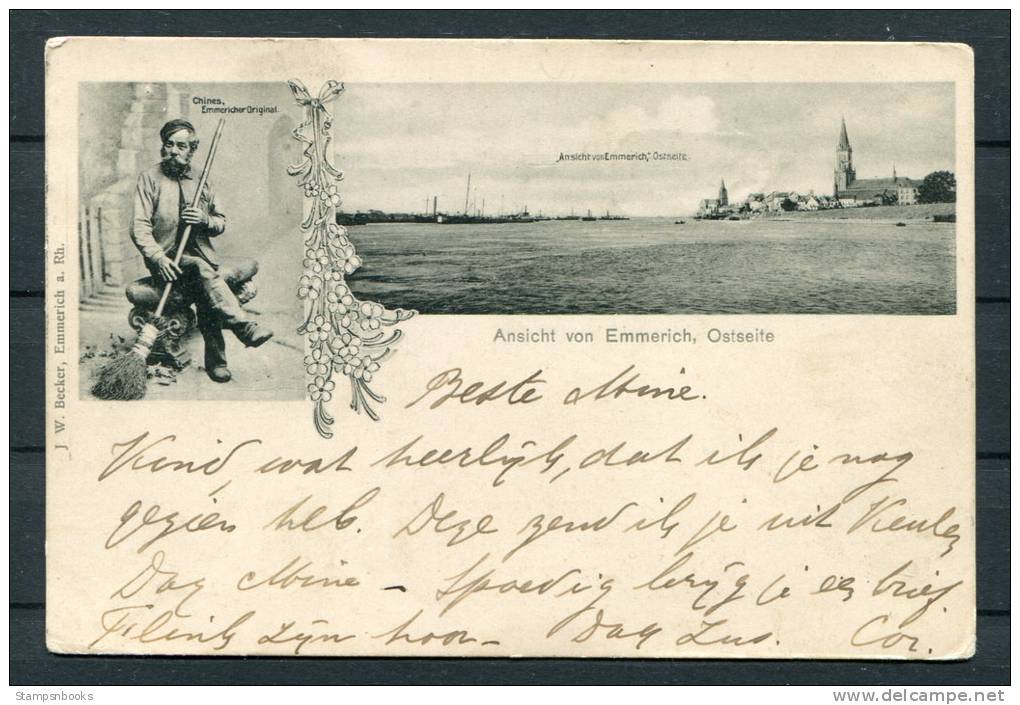 Chines,
Emmericher Original.
„Ansicht von Emmerich,“ Ostseite.
J. W. Becker, Emmerich a. Rh.
Ansicht von Emmerich, Ostseite
Beste Mine.
Kind, wat heerlijk, dat ik je nog
gezien heb. Deze zend ik je uit Keulen
Dag Mine – Spoedig krijg je een brief.
Flink zijn hoor – Dag Zus. Cor.
Stampsnbooks
www.delcampe.net